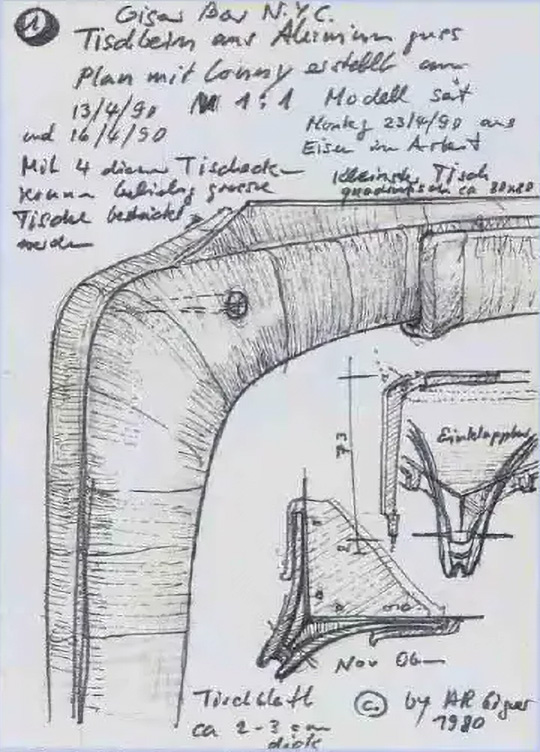 1
Giger Bar N.Y.C.
Tischbein aus Aluminium guss
Plan mit Conny erstellt am
13/4/90 M 1:1 Modell
und 16/4/90 Montag 23/4/90 aus
Eisen in Arbeit
Mit 4 diesen Tischecken
können beliebig grosse
Tische bestückt
werden
kleinster Tisch
quadratisch ca 80x80
73
Einklappbar
Von Oben
Tischblatt
ca 2-3 cm
dick
by HR Giger